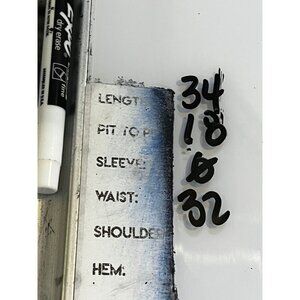 EXPO
dry erase
fine
LENGT 34
PIT TO P 18
SLEEVE:
WAIST: 32
SHOULDER
HEM: